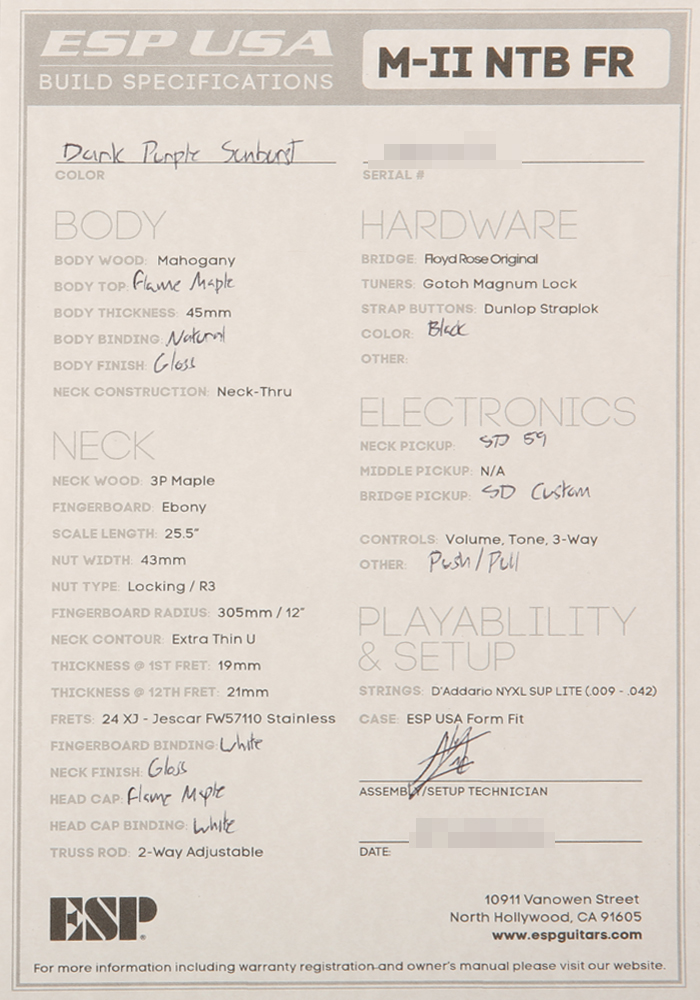 ESP USA
BUILD SPECIFICATIONS
M-II NTB FR
Dark Purple Sunburst
COLOR
SERIAL #
BODY
BODY WOOD: Mahogany
BODY TOP: Flame Maple
BODY THICKNESS: 45mm
BODY BINDING: Natural
BODY FINISH: Gloss
NECK CONSTRUCTION: Neck-Thru
NECK
NECK WOOD: 3P Maple
FINGERBOARD: Ebony
SCALE LENGTH: 25.5"
NUT WIDTH: 43mm
NUT TYPE: Locking / R3
FINGERBOARD RADIUS: 305mm / 12"
NECK CONTOUR: Extra Thin U
THICKNESS @ 1ST FRET: 19mm
THICKNESS @ 12TH FRET: 21mm
FRETS: 24 XJ - Jescar FW57110 Stainless
FINGERBOARD BINDING: White
NECK FINISH: Gloss
HEAD CAP: Flame Maple
HEAD CAP BINDING: White
TRUSS ROD: 2-Way Adjustable
HARDWARE
BRIDGE: Floyd Rose Original
TUNERS: Gotoh Magnum Lock
STRAP BUTTONS: Dunlop Straplok
COLOR: Black
OTHER:
ELECTRONICS
NECK PICKUP: SD 59
MIDDLE PICKUP: N/A
BRIDGE PICKUP: SD Custom
CONTROLS: Volume, Tone, 3-Way
OTHER: Push/Pull
PLAYABLILITY
& SETUP
STRINGS: D'Addario NYXL SUP LITE (.009 - .042)
CASE: ESP USA Form Fit
ASSEMBLY/SETUP TECHNICIAN
DATE:
ESP
10911 Vanowen Street
North Hollywood, CA 91605
www.espguitars.com
For more information including warranty registration and owner's manual please visit our website.